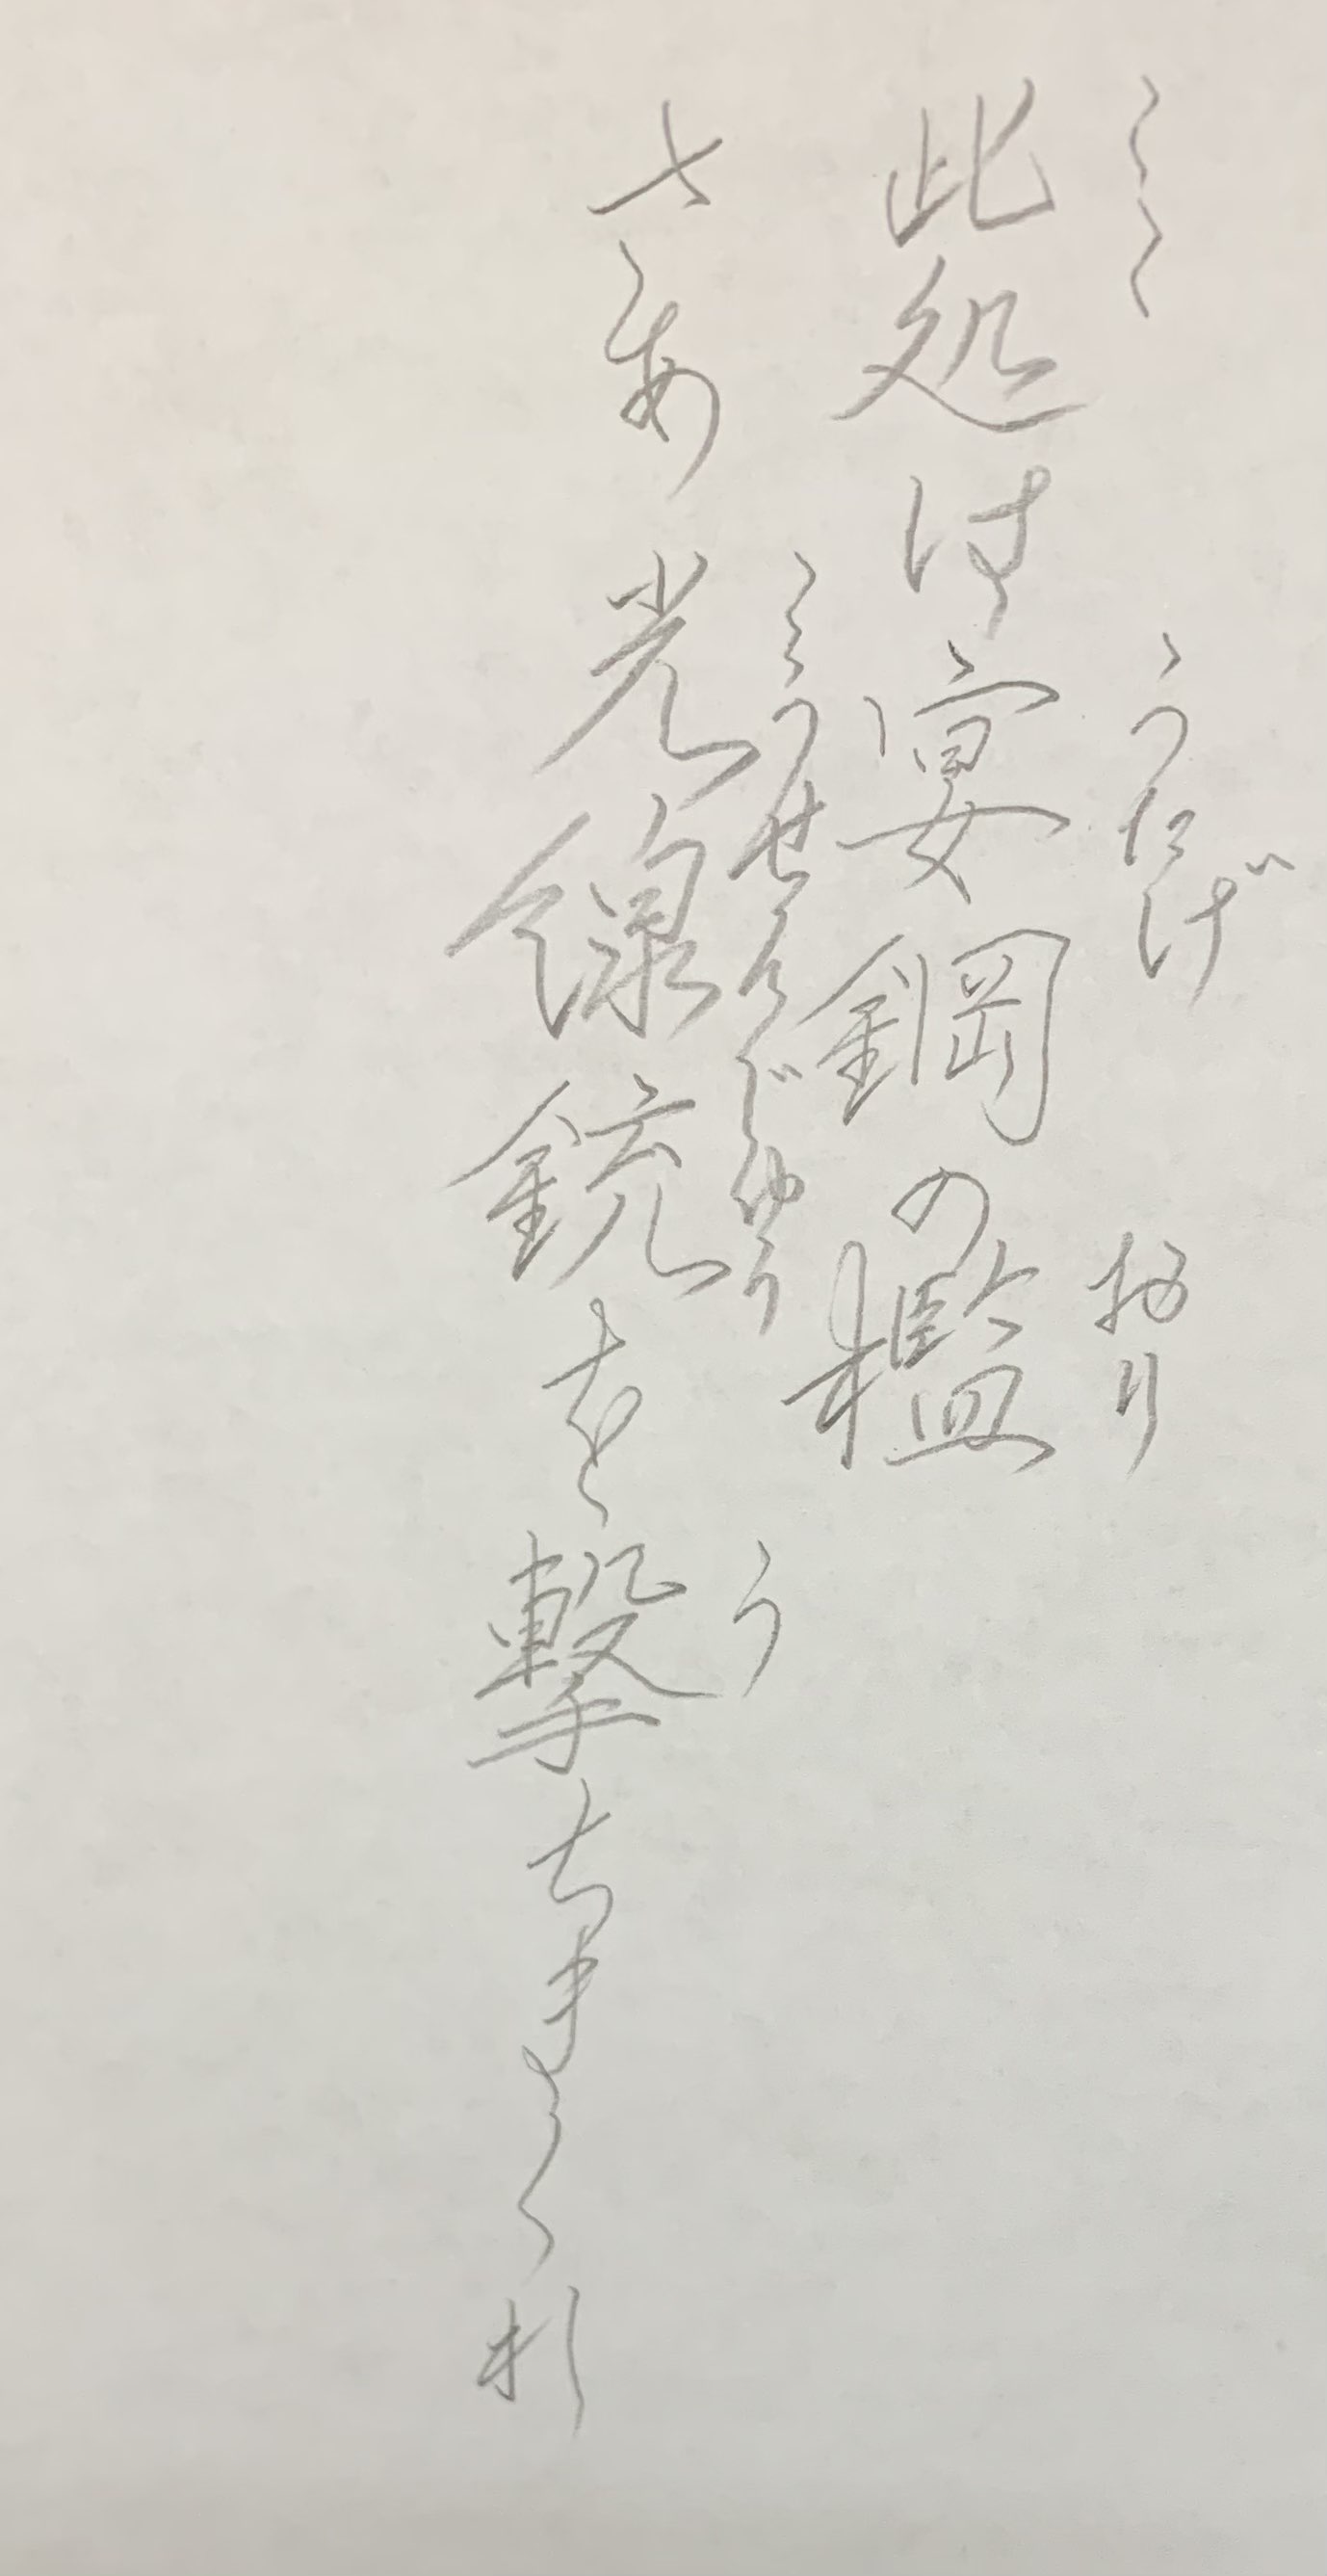 此処は宴 鋼の檻
ここ うたげ おり
さあ 光線銃を撃ちまくれ
こうせんじゅう う